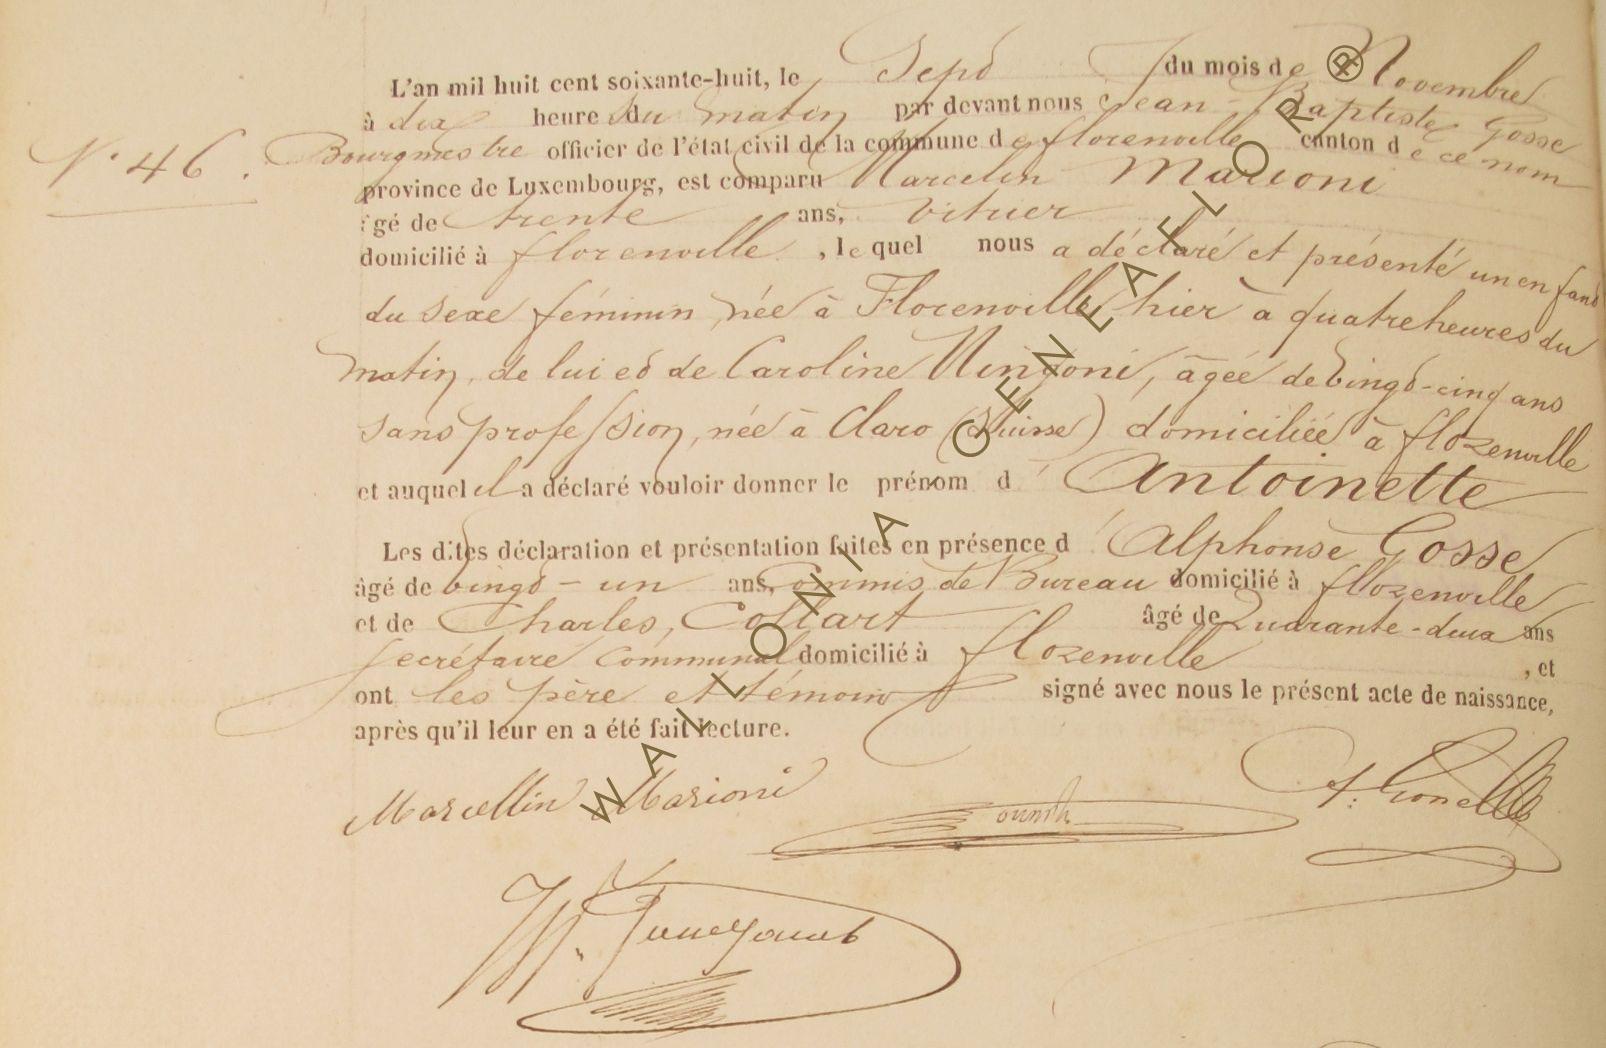 L'an mil huit cent soixante-huit, le Sept du mois de Novembre
à dix heure du matin par devant nous Jean-Baptiste Gosse
N° 46. Bourgmestre officier de l'état civil de la commune de florenville canton de ce nom
province de Luxembourg, est comparu Marcelin Marioni
âgé de trente ans, vitrier
domicilié à florenville, lequel nous a déclaré et présenté un enfant
du sexe féminin, née à Florenville hier à quatre heures du
matin, de lui et de Caroline âgée de vingt-cinq ans
sans profession, née à Claro (Suisse) domiciliée à florenville
et auquel il a déclaré vouloir donner le prénom d'Antoinette
Les dites déclaration et présentation faites en présence d'Alphonse Gosse
âgé de vingt-un ans, Commis de Bureau domicilié à florenville
et de Charles, Collart âgé de Quarante-deux ans
secrétaire communal domicilié à florenville, et
ont les père et témoins signé avec nous le présent acte de naissance,
après qu'il leur en a été fait lecture.
Marcellin Marioni
WALLONIA GENEAFLOR ®